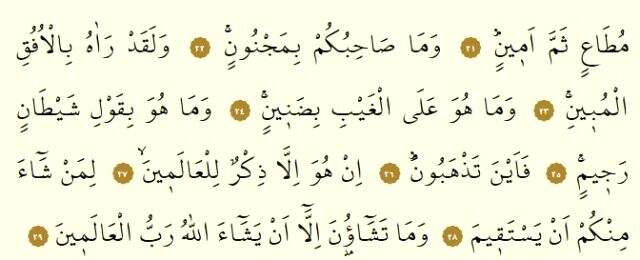 مُطَاعٍ ثَمَّ اَم۪ينٍۜ ﴿٢١﴾ وَمَا صَاحِبُكُمْ بِمَجْنُونٍۚ ﴿٢٢﴾ وَلَقَدْ رَاٰهُ بِالْاُفُقِ
الْمُب۪ينِۚ ﴿٢٣﴾ وَمَا هُوَ عَلَى الْغَيْبِ بِضَن۪ينٍۚ ﴿٢٤﴾ وَمَا هُوَ بِقَوْلِ شَيْطَانٍ
رَج۪يمٍۚ ﴿٢٥﴾ فَاَيْنَ تَذْهَبُونَۜ ﴿٢٦﴾ اِنْ هُوَ اِلَّا ذِكْرٌ لِلْعَالَم۪ينَۙ ﴿٢٧﴾ لِمَنْ شَٓاءَ
مِنْكُمْ اَنْ يَسْتَق۪يمَ ﴿٢٨﴾ وَمَا تَشَٓاؤُ۫نَ اِلَّٓا اَنْ يَشَٓاءَ اللّٰهُ رَبُّ الْعَالَم۪ينَ ﴿٢٩﴾